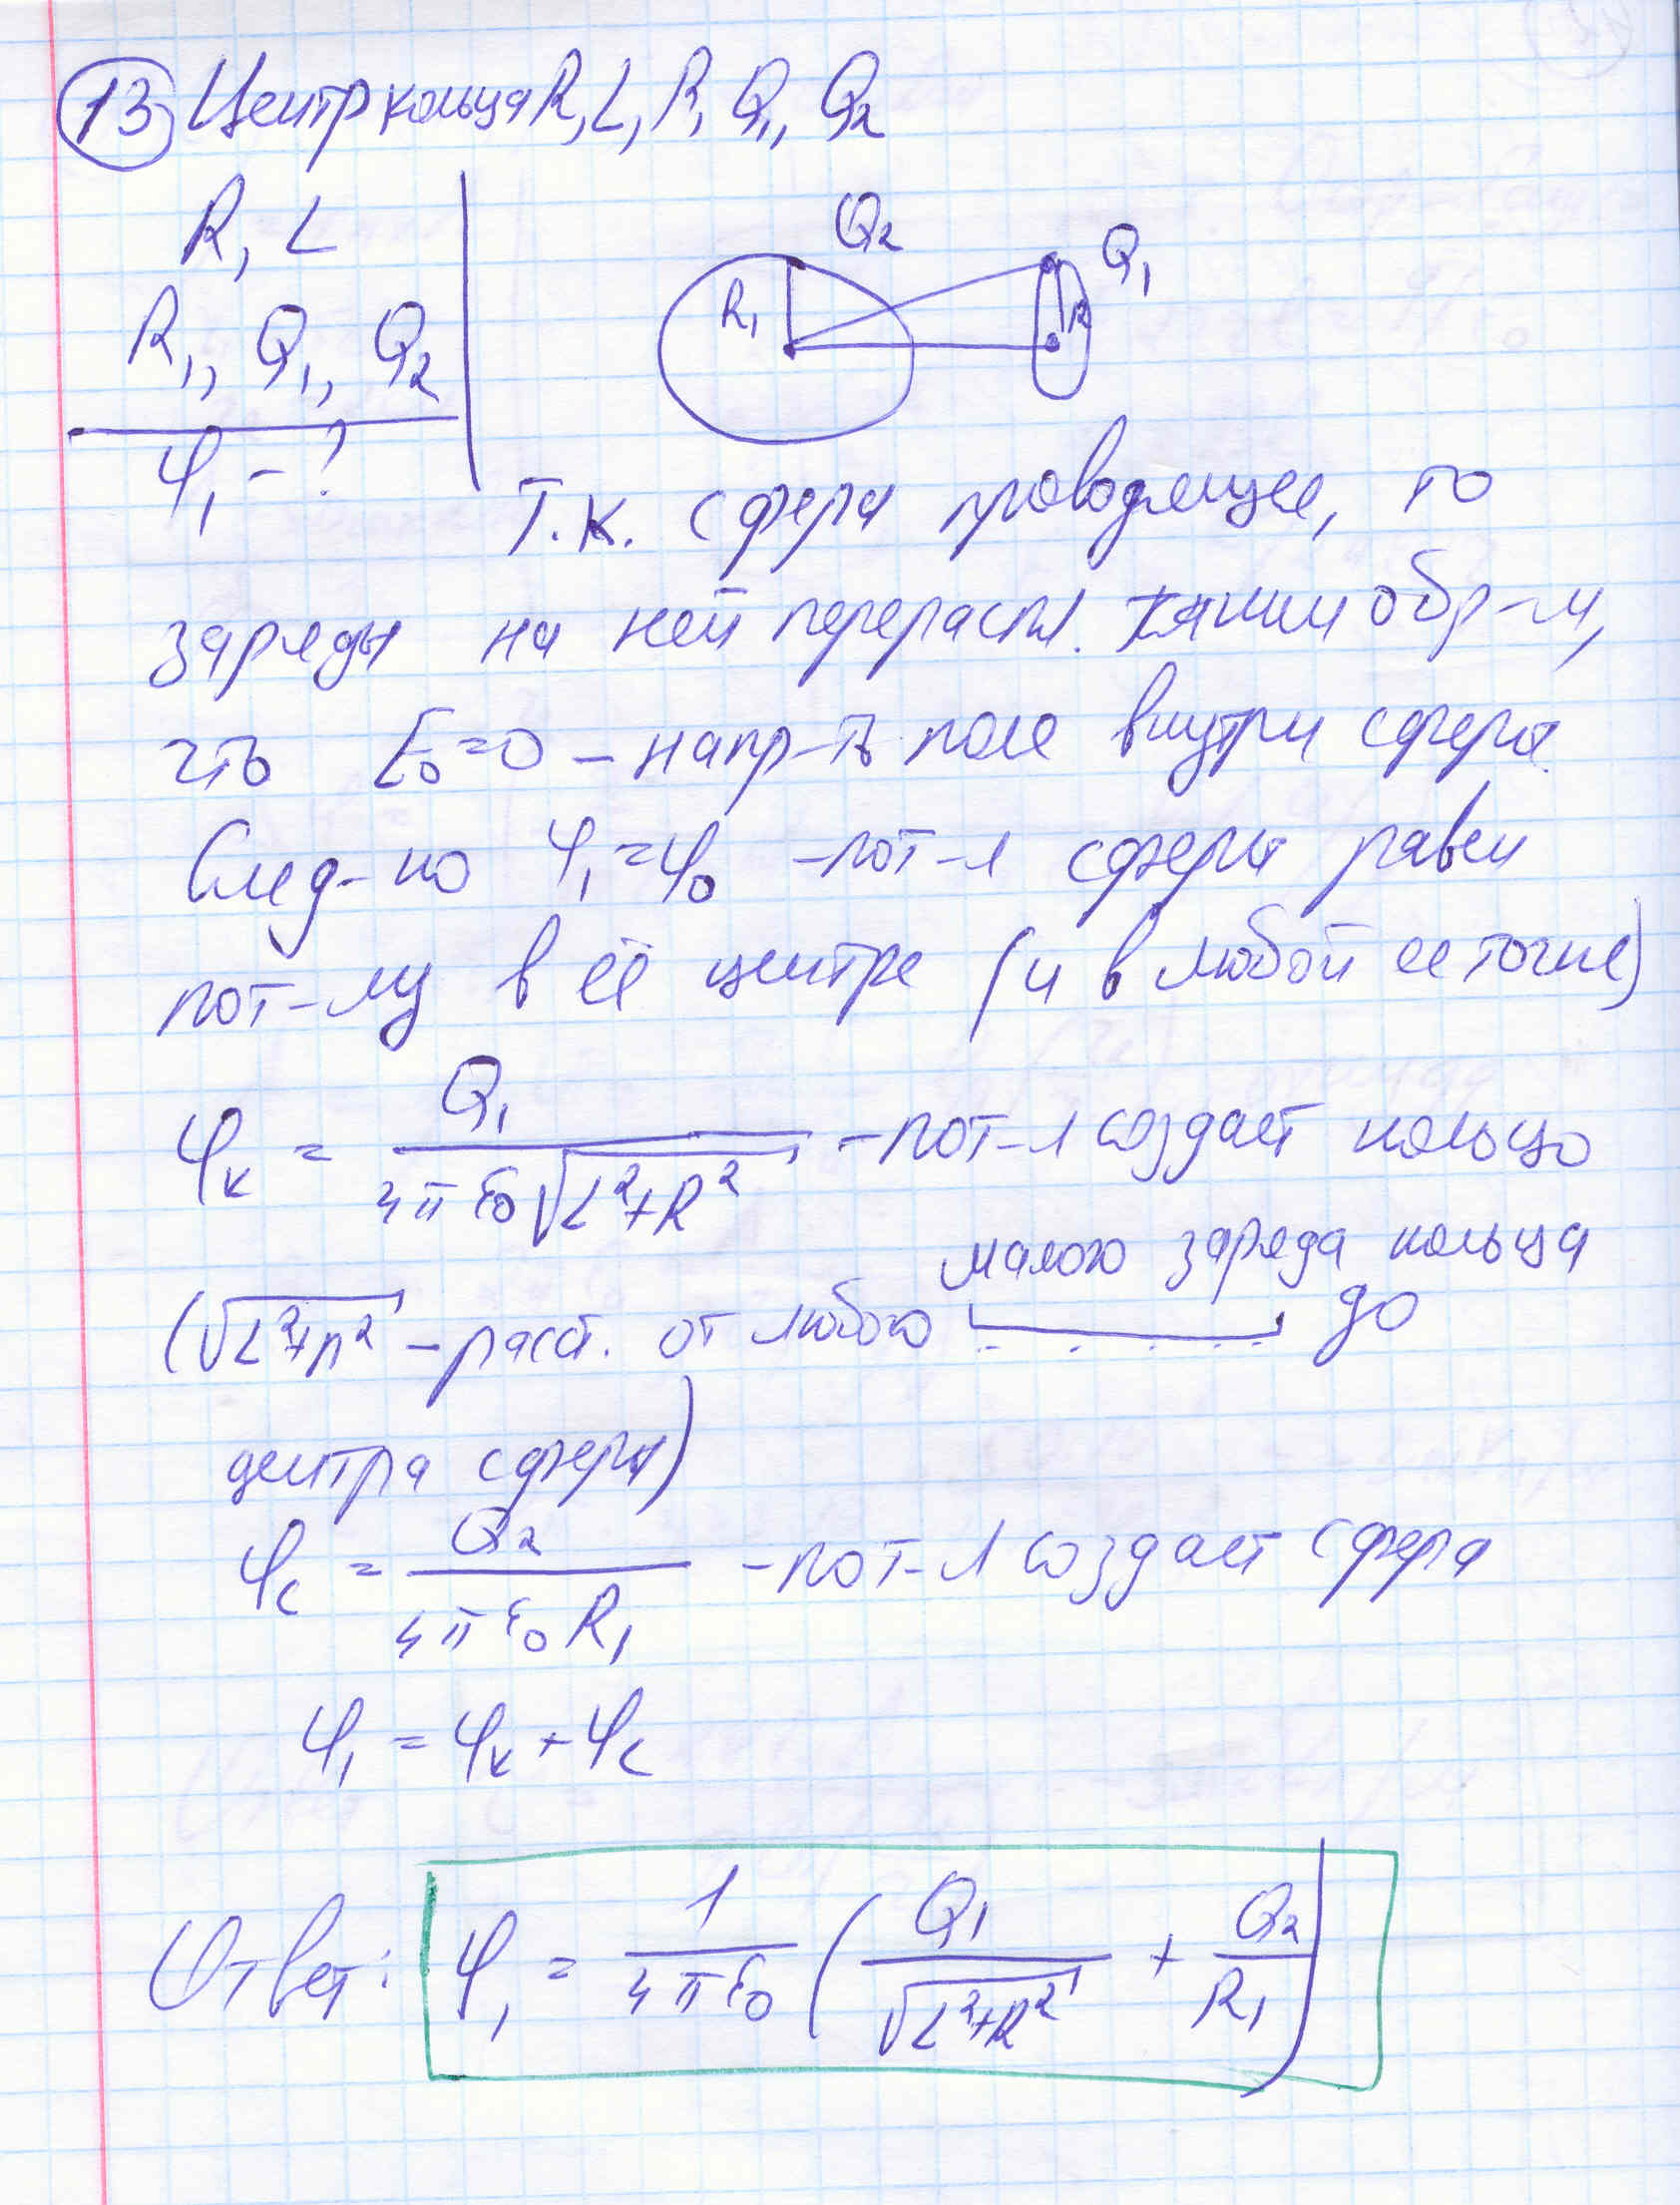 13 Центр кольца R, L, R, Q₁, Q₂
R, L
R₁, Q₁, Q₂
φ₁ - ?
Q₂
Q₁
R₁
R
Т.к. сфера проводящее, то
заряды на ней перераспл. таким обр-м,
что E₀=0 – напр-ть поле внутри сферы.
След-но φ₁=φ₀ – пот-л сферы равен
пот-лу в её центре (и в любой ее точке)
φк = Q₁ / (4πε₀√(L²+R²)) – пот-л создает кольцо
малого заряда кольца
(√(L²+R²) – расст. от любого до
центра сферы)
φс = Q₂ / (4πε₀R₁) – пот-л создает сфера
φ₁ = φк + φс
Ответ: φ₁ = 1/(4πε₀) (Q₁/√(L²+R²) + Q₂/R₁)